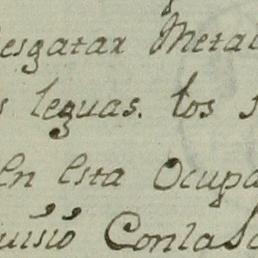 esgatar Metal
s leguas. los s
en esta Ocupa
uisio Conlas